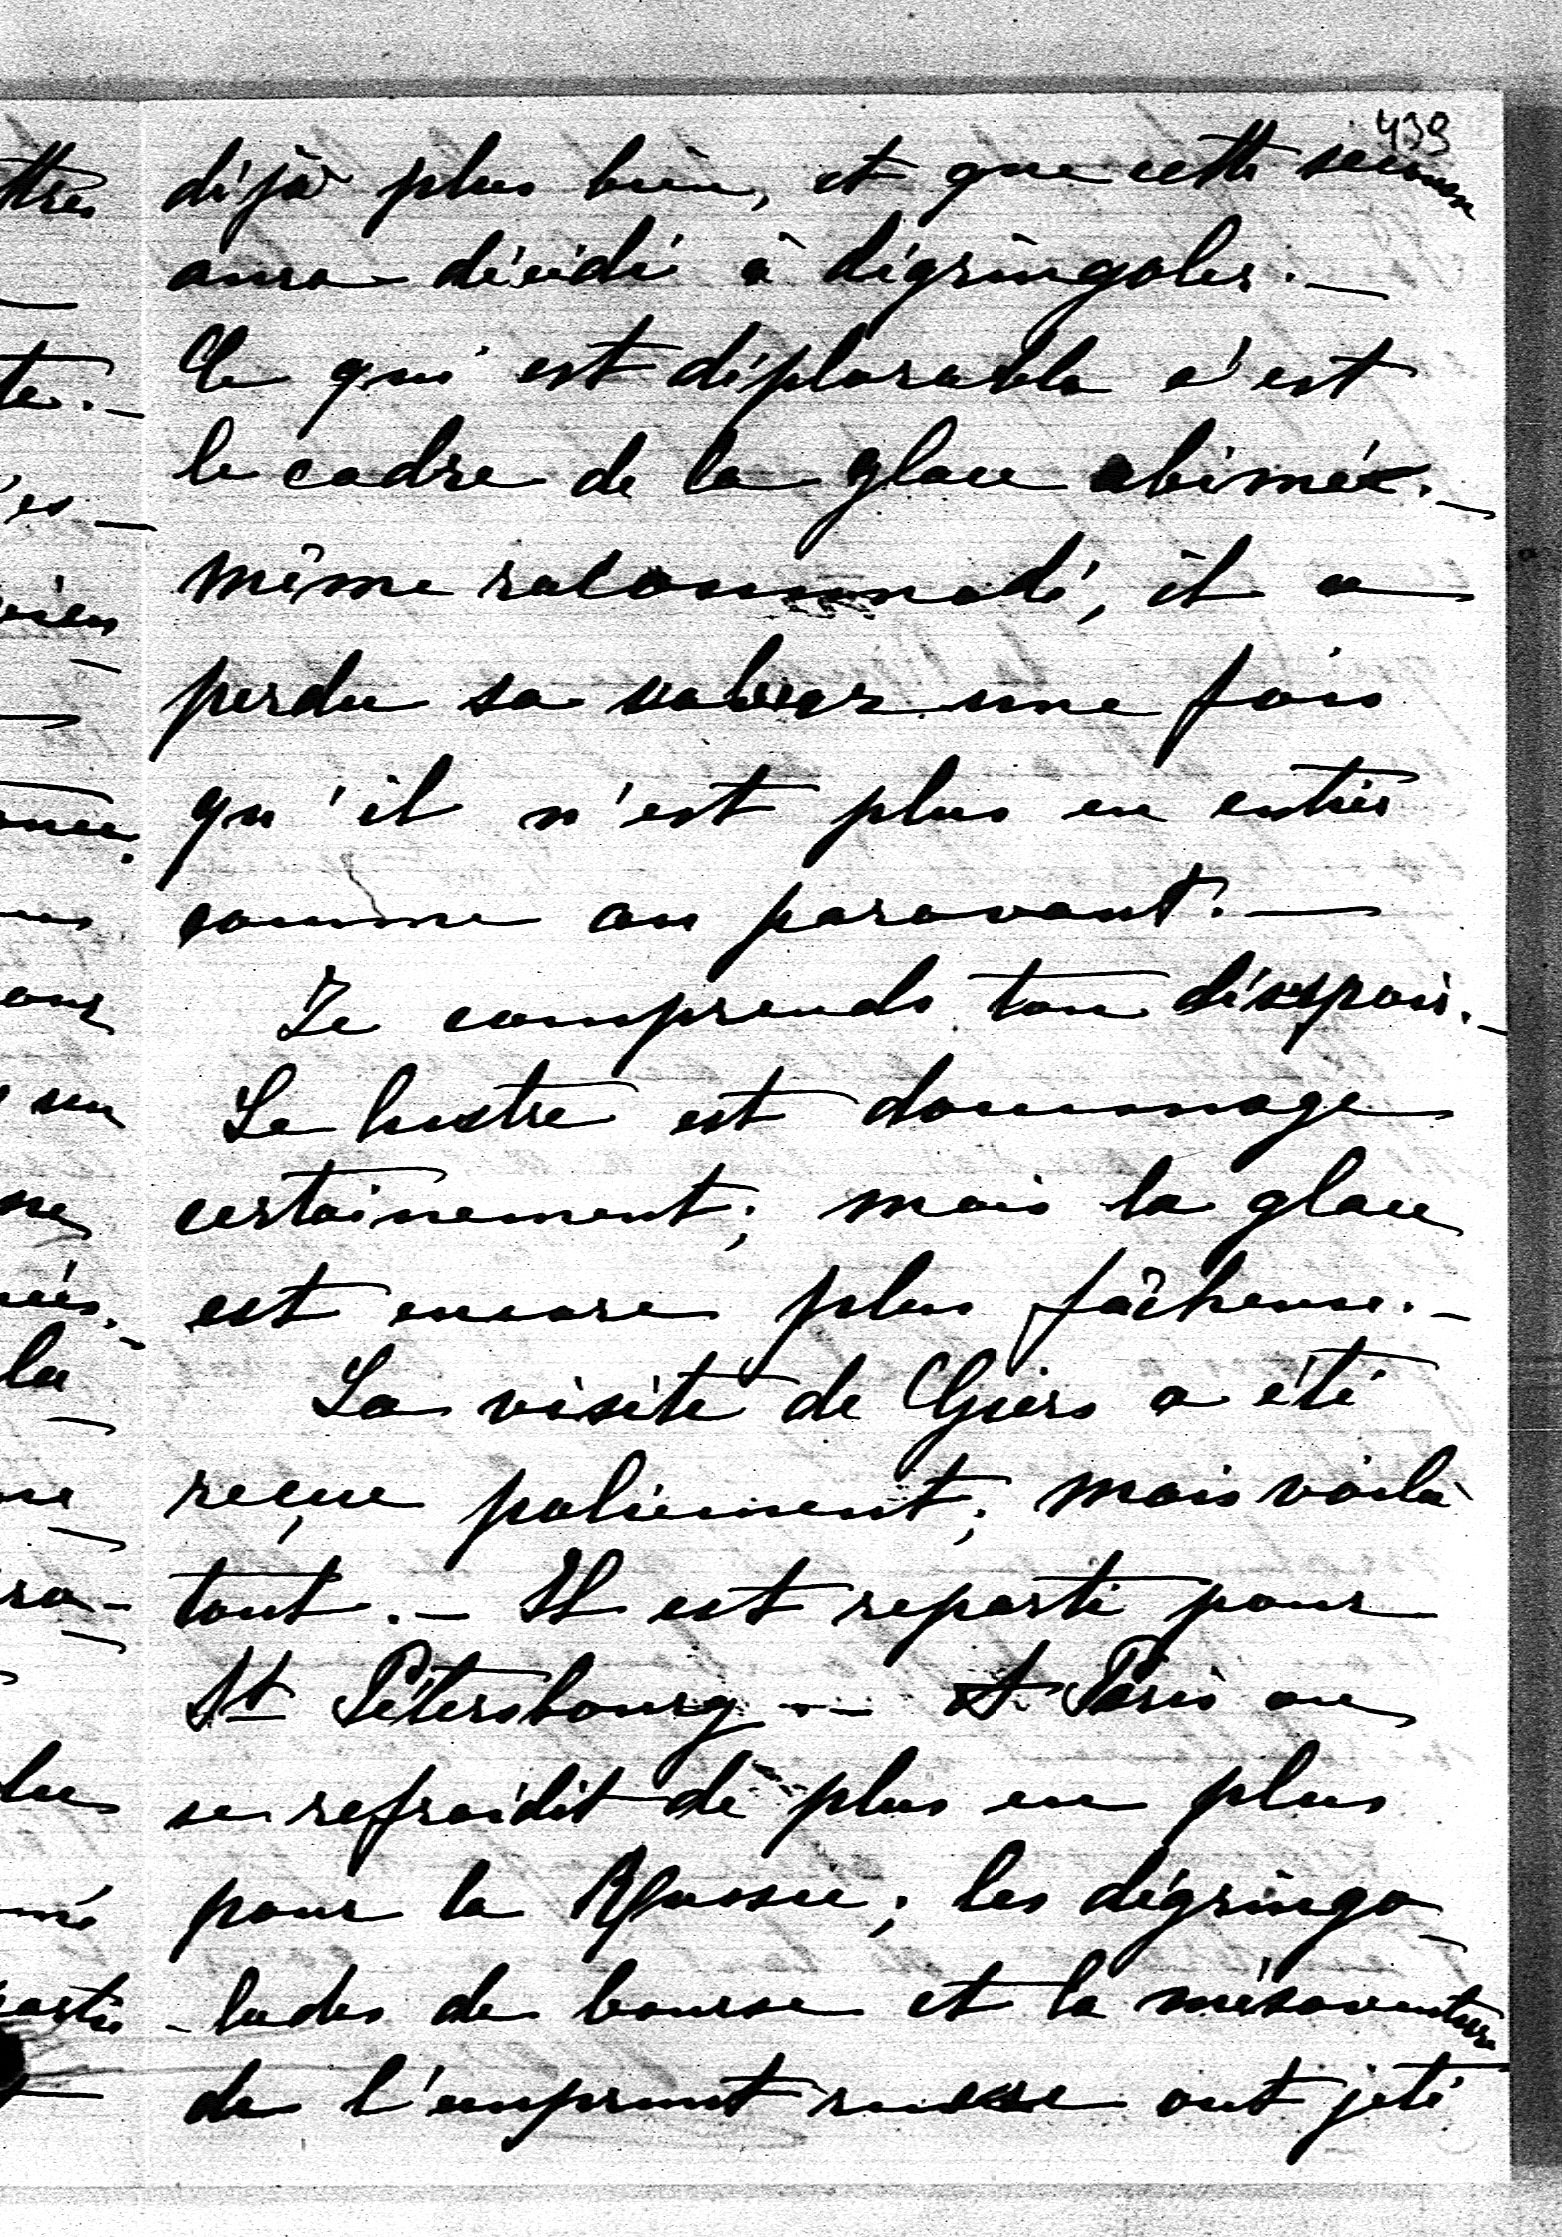 439
déjà plus bien, et que cette secousse
aura décidé à dégringoler. —
Ce qui est déplorable c'est
le cadre de la glace abimée. —
même racommodé, il a
perdu sa valeur une fois
qu'il n'est plus en entier
comme au paravant. —
Je comprends ton désespoir. —
Le lustre est dommage
certainement; mais la glace
est encore plus fâcheuse. —
La visite de Giers a été
reçue poliement; mais voilà
tout. — Il est reparti pour
St Pétersbourg. — A Paris on
se refroidit de plus en plus
pour la Russie; les dégringo-
-lades de bourse et la mésaventure
de l'emprunt russe ont jeté